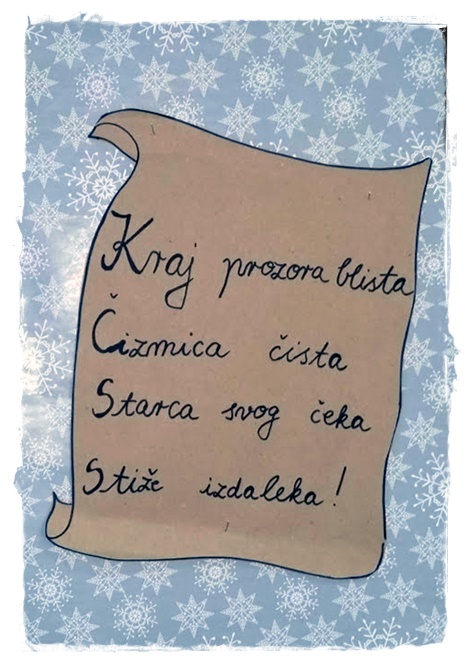 Kraj prozora blista
Čizmica čista
Starca svog čeka
Stiže izdaleka!